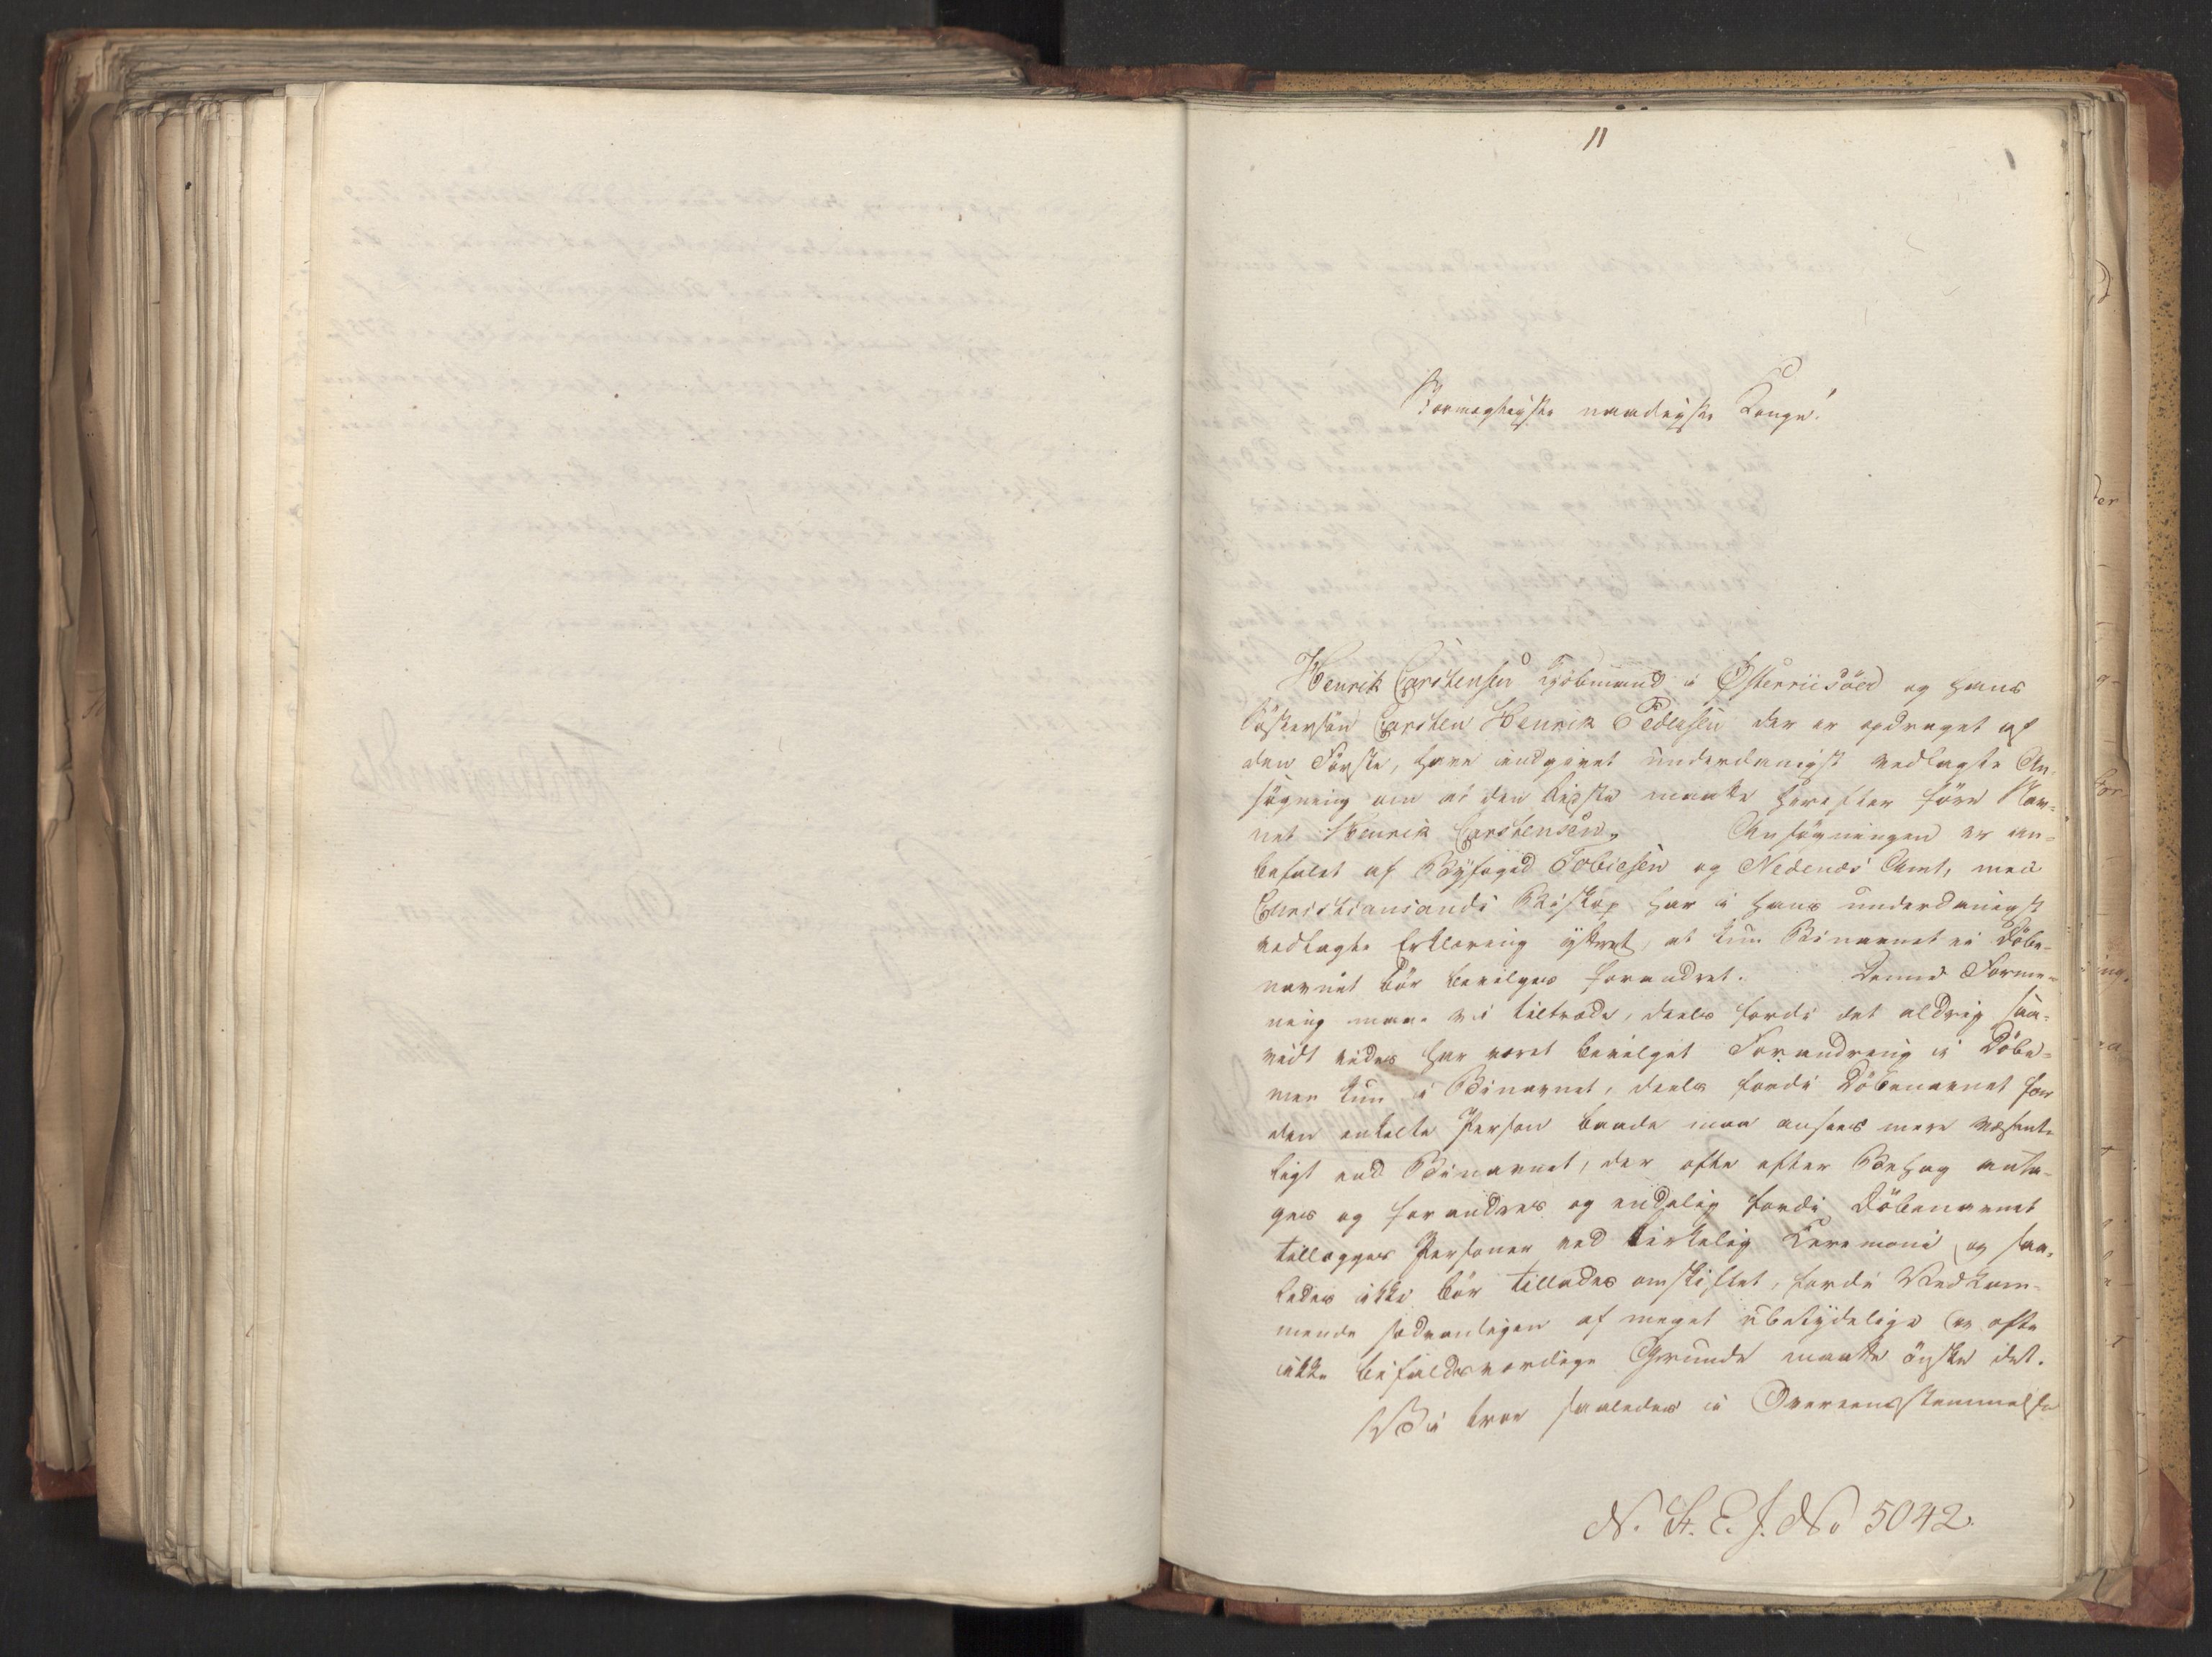 11
Stormægtigste naadigste Konge!
Henrik Carstensen Kjöbmand i Österriisöer og hans
Söstersön Carsten Henrik Pedersen der er opdraget af
den Förste, have indgivet underdanigst vedlagte An-
søgning om at den Sidste maatte herefter före Nav-
net Henrik Carstensen. Ansögningen er an-
befalet af Byfoged Tobiesen og Nedenæs Amt, men
Christiansands Biskop har i hans underdanigst
vedlagte Erklæring yttret, at kun Binavnet ei Döbe-
navnet bör bevilges forandret. Denne Forme-
ning maae vi tiltræde, deels fordi det aldrig saa-
vidt vides har været bevilget Forandring i Döbe-
men kun i Binavnet, deels fordi Döbenavnet for
den enkelte Person baade maa ansees mere væsent-
ligt end Binavnet, der ofte efter Behag anta-
ges og forandres og endelig fordi Döbenavnet
tillægges Personer ved kirkelig Ceremoni og saa-
ledes ikke bör tillades omskiftet, fordi Vedkom-
mende sædvanligen af meget ubetydelige og ofte
ikke bifaldsværdige Grunde maatte önske det.
Vi troe saaledes i Overeensstemmelse
N. St. E. J. No 5042.